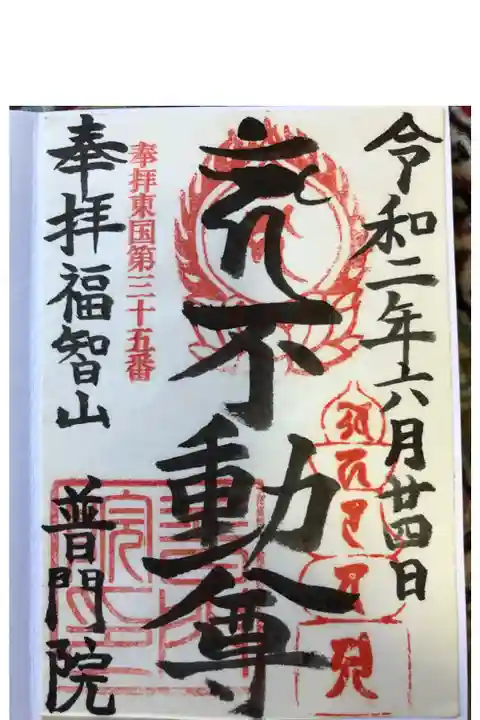 令和二年六月廿四日
不動尊
奉拝東国第三十五番
奉拝福智山
普門院